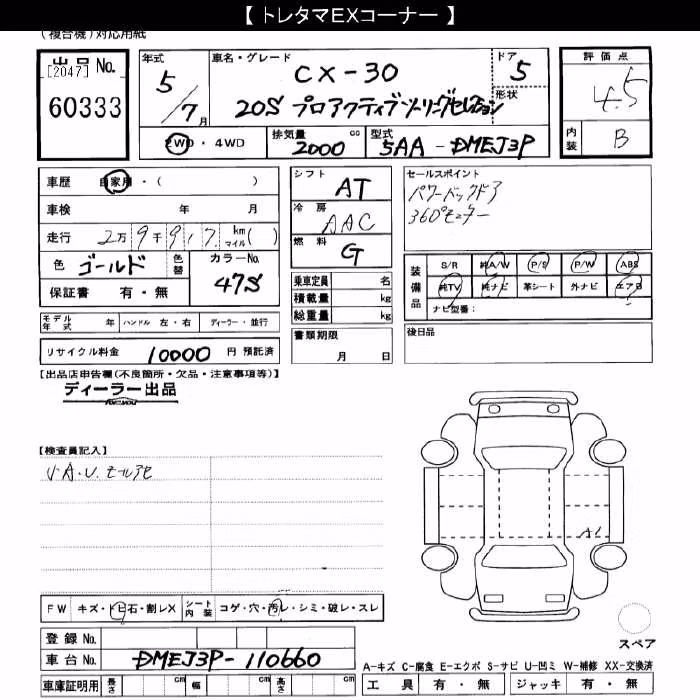 【 トレタマEXコーナー 】
(複合機)対応用紙
出品 No.
[2047]
60333
年式
5/7月
車名・グレード
CX-30
20S プロアクティブツーリングセレクション
ドア
5
形状
評価点
4.5
内装
B
2WD・4WD
排気量 2000 cc
型式 5AA-DMEJ3P
車歴 自家用・( )
車検 年 月
走行 2万9千917 km マイル( )
色 ゴールド
色替
カラーNo. 47S
保証書 有・無
シフト AT
冷房 AAC
燃料 G
乗車定員 名
積載量 kg
総重量 kg
セールスポイント
パワーバックドア
360°モニター
装備品
S/R 純A/W P/S P/W ABS
純TV 純ナビ 革シート 外ナビ エアB
ナビ型番:
モデル年式 年 ハンドル 左・右 ディーラー・並行
リサイクル料金 10000 円 預託済
書類期限
月 日
後日品
【出品店申告欄(不良箇所・欠品・注意事項等)】
ディーラー出品
【検査員記入】
A1
FW キズ・トビ石・割レX
シート内装 コゲ・穴・汚レ・シミ・破レ・スレ
登録 No.
車台 No. DMEJ3P-110660
車庫証明用 長さ cm 幅 cm 高さ cm
スペア
A-キズ C-腐食 E-エクボ S-サビ U-凹ミ W-補修 XX-交換済
工具 有・無 ジャッキ 有・無